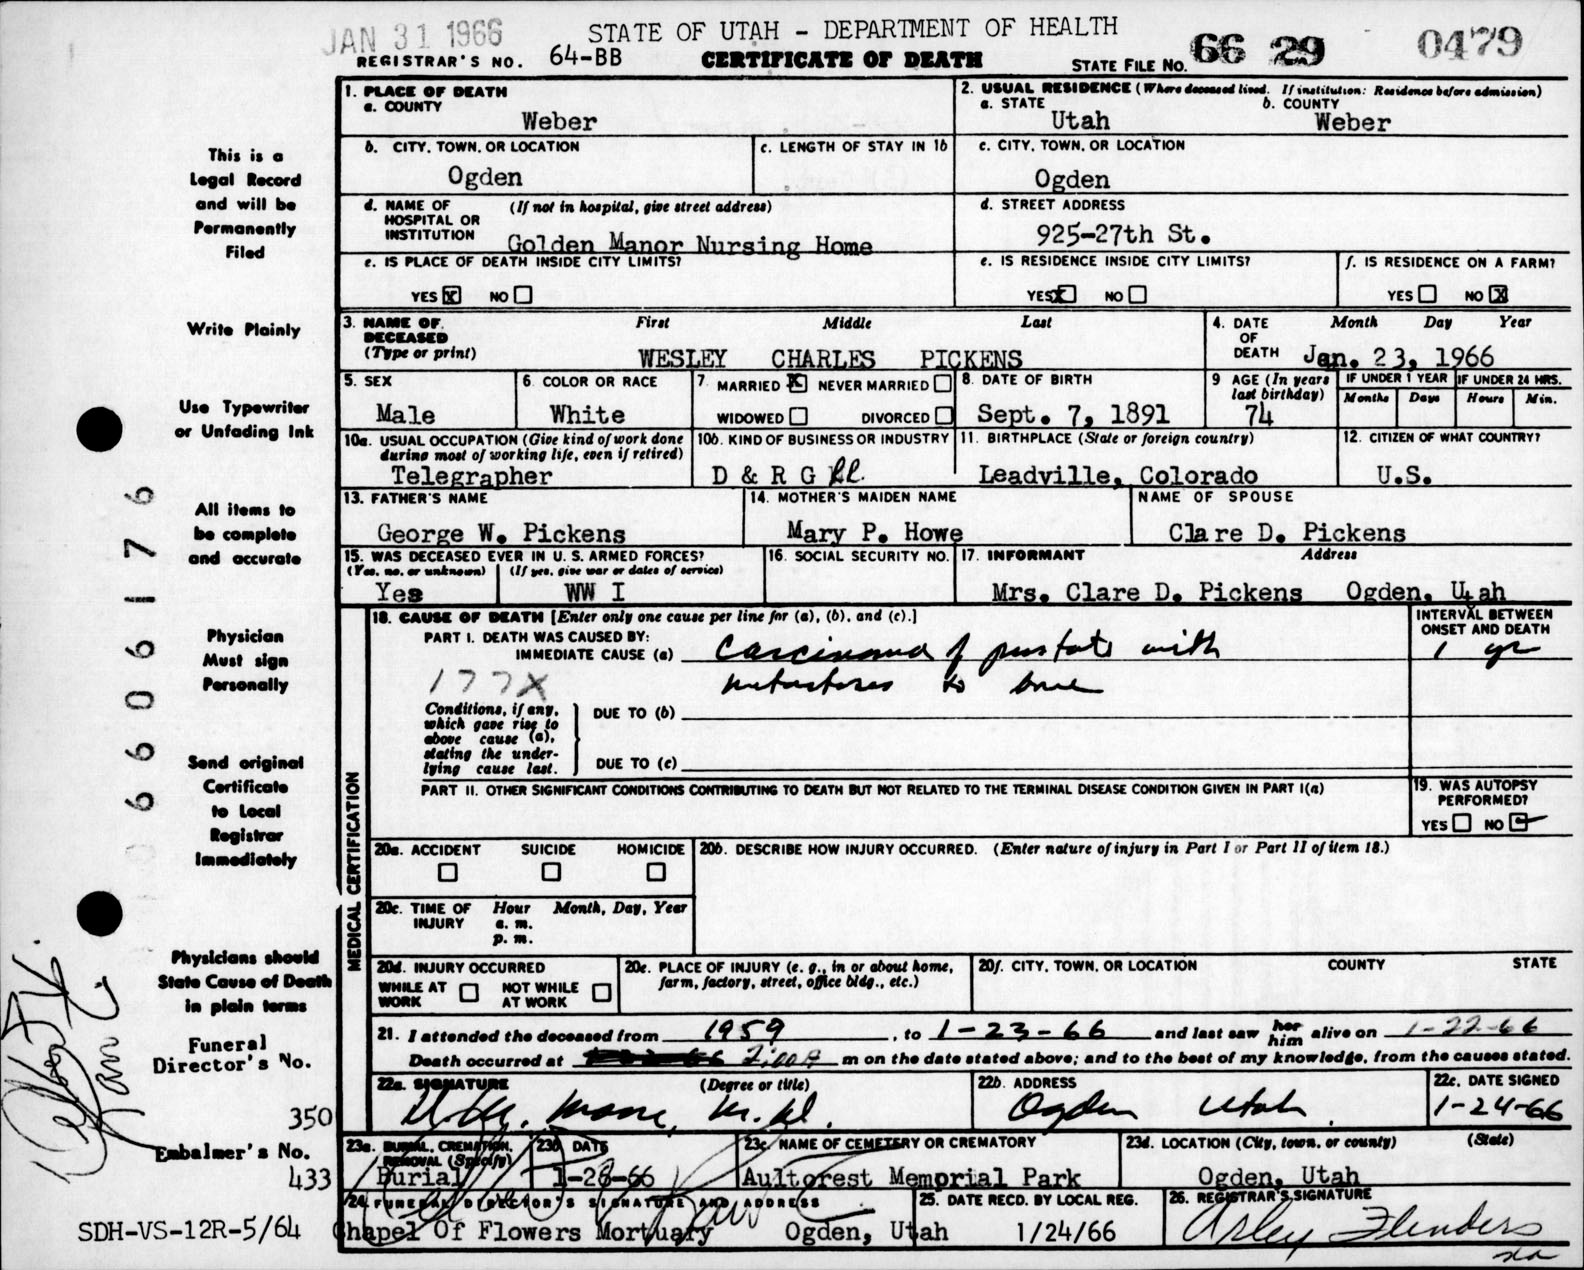 JAN 31 1966
STATE OF UTAH - DEPARTMENT OF HEALTH
REGISTRAR'S NO. 64-BB
CERTIFICATE OF DEATH
STATE FILE NO. 66 29 0479
1. PLACE OF DEATH
a. COUNTY
Weber
2. USUAL RESIDENCE (Where deceased lived. If institution: Residence before admission)
a. STATE
Utah
b. COUNTY
Weber
b. CITY, TOWN, OR LOCATION
Ogden
c. LENGTH OF STAY IN 1b
c. CITY, TOWN, OR LOCATION
Ogden
d. NAME OF HOSPITAL OR INSTITUTION
(If not in hospital, give street address)
Golden Manor Nursing Home
d. STREET ADDRESS
925-27th St.
e. IS PLACE OF DEATH INSIDE CITY LIMITS?
YES X NO
e. IS RESIDENCE INSIDE CITY LIMITS?
YES X NO
f. IS RESIDENCE ON A FARM?
YES NO X
3. NAME OF DECEASED
(Type or print)
First Middle Last
WESLEY CHARLES PICKENS
4. DATE OF DEATH
Month Day Year
Jan. 23, 1966
5. SEX
Male
6. COLOR OR RACE
White
7. MARRIED X NEVER MARRIED
WIDOWED DIVORCED
8. DATE OF BIRTH
Sept. 7, 1891
9 AGE (In years last birthday)
74
IF UNDER 1 YEAR
Months Days
IF UNDER 24 HRS.
Hours Min.
10a. USUAL OCCUPATION (Give kind of work done during most of working life, even if retired)
Telegrapher
10b. KIND OF BUSINESS OR INDUSTRY
D & R G RR.
11. BIRTHPLACE (State or foreign country)
Leadville, Colorado
12. CITIZEN OF WHAT COUNTRY?
U.S.
13. FATHER'S NAME
George W. Pickens
14. MOTHER'S MAIDEN NAME
Mary P. Howe
NAME OF SPOUSE
Clare D. Pickens
15. WAS DECEASED EVER IN U. S. ARMED FORCES?
(Yes, no, or unknown) (If yes, give war or dates of service)
Yes WW I
16. SOCIAL SECURITY NO.
17. INFORMANT Address
Mrs. Clare D. Pickens Ogden, Utah
MEDICAL CERTIFICATION
18. CAUSE OF DEATH [Enter only one cause per line for (a), (b), and (c).]
INTERVAL BETWEEN ONSET AND DEATH
PART I. DEATH WAS CAUSED BY:
IMMEDIATE CAUSE (a) Carcinoma of prostate with
1 yr
177X metastases to bone
Conditions, if any, which gave rise to above cause (a), stating the underlying cause last.
DUE TO (b)
DUE TO (c)
PART II. OTHER SIGNIFICANT CONDITIONS CONTRIBUTING TO DEATH BUT NOT RELATED TO THE TERMINAL DISEASE CONDITION GIVEN IN PART I(a)
19. WAS AUTOPSY PERFORMED?
YES NO
20a. ACCIDENT SUICIDE HOMICIDE
20b. DESCRIBE HOW INJURY OCCURRED. (Enter nature of injury in Part I or Part II of item 18.)
20c. TIME OF INJURY
Hour Month, Day, Year
a. m.
p. m.
20d. INJURY OCCURRED
WHILE AT WORK NOT WHILE AT WORK
20e. PLACE OF INJURY (e. g., in or about home, farm, factory, street, office bldg., etc.)
20f. CITY, TOWN, OR LOCATION COUNTY STATE
21. I attended the deceased from 1959, to 1-23-66 and last saw her him alive on 1-22-66
Death occurred at 7:00 A m on the date stated above; and to the best of my knowledge, from the causes stated.
22a. SIGNATURE (Degree or title)
Moore, M.D.
22b. ADDRESS
Ogden Utah
22c. DATE SIGNED
1-24-66
23a. BURIAL, CREMATION, REMOVAL (Specify)
Burial
23b DATE
1-26-66
23c NAME OF CEMETERY OR CREMATORY
Aultorest Memorial Park
23d. LOCATION (City, town, or county) (State)
Ogden, Utah
24. FUNERAL DIRECTOR'S SIGNATURE AND ADDRESS
Chapel Of Flowers Mortuary Ogden, Utah
25. DATE RECD. BY LOCAL REG.
1/24/66
26. REGISTRAR'S SIGNATURE
Arley Flinders
This is a
Legal Record
and will be
Permanently
Filed
Write Plainly
Use Typewriter
or Unfading Ink
All items to
be complete
and accurate
Physician
Must sign
Personally
Send original
Certificate
to Local
Registrar
Immediately
Physicians should
State Cause of Death
in plain terms
Funeral
Director's No.
350
Embalmer's No.
433
SDH-VS-12R-5/64
6606176